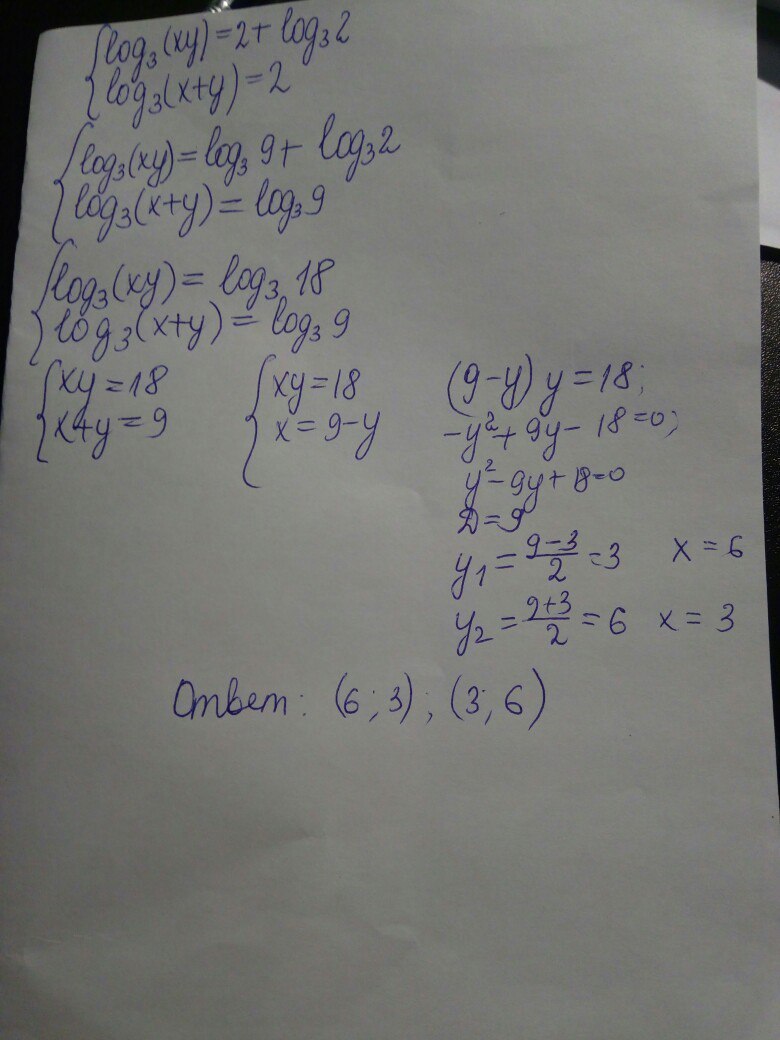 {log₃(xy) = 2 + log₃2
log₃(x+y) = 2
{log₃(xy) = log₃ 9 + log₃2
log₃(x+y) = log₃9
{log₃(xy) = log₃ 18
log₃(x+y) = log₃ 9
{xy = 18
x+y = 9
{xy = 18
x = 9-y
(9-y) y = 18;
-y² + 9y - 18 = 0;
y² - 9y + 18 = 0
D = 9
y₁ = (9-3)/2 = 3 x = 6
y₂ = (9+3)/2 = 6 x = 3
Ответ: (6; 3); (3; 6)